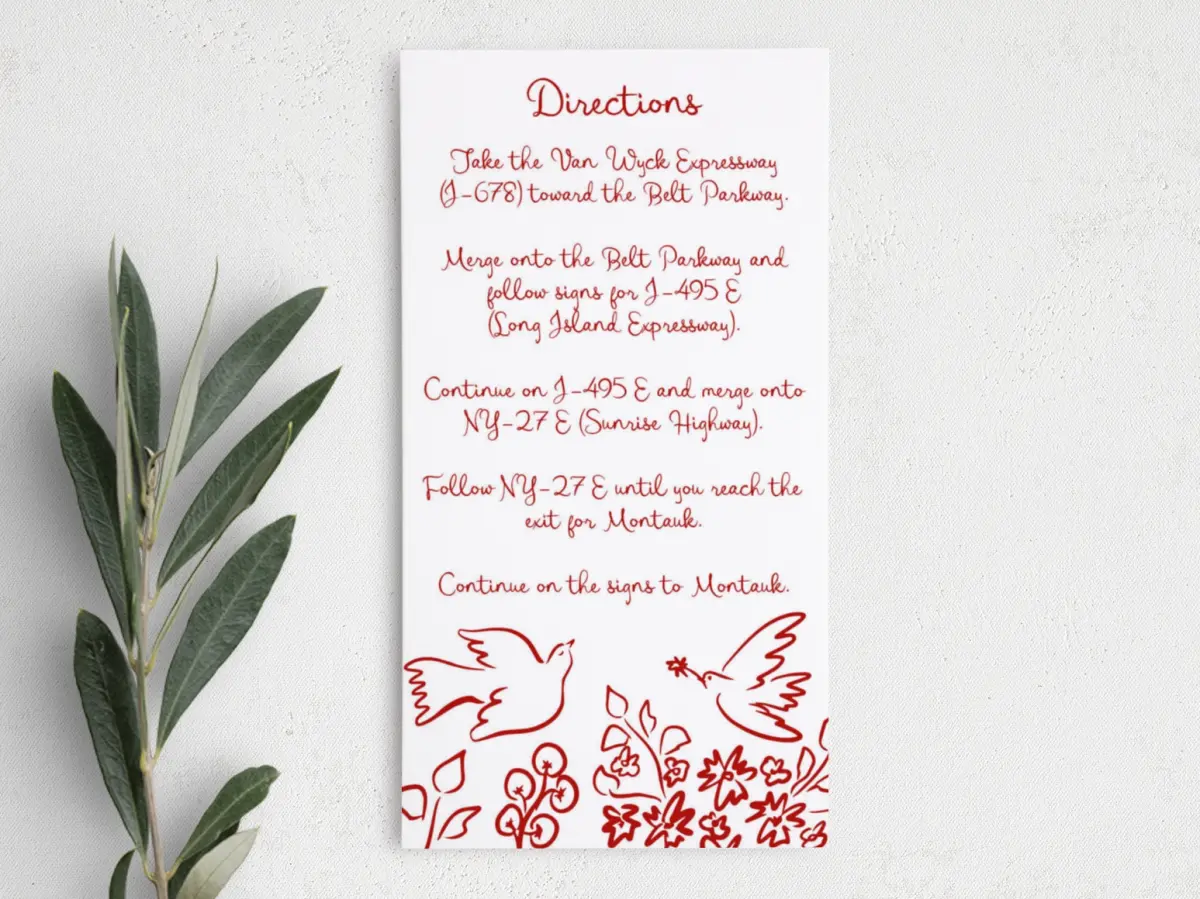 Directions
Take the Van Wyck Expressway
(I-678) toward the Belt Parkway.
Merge onto the Belt Parkway and
follow signs for I-495 E
(Long Island Expressway).
Continue on I-495 E and merge onto
NY-27 E (Sunrise Highway).
Follow NY-27 E until you reach the
exit for Montauk.
Continue on the signs to Montauk.